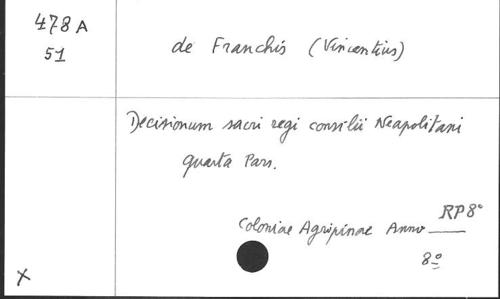 478 A
51
de Franchis (Vincentius)
Decisionum sacri regi consilii Neapolitani
quarta Pars.
RP 8°
Coloniae Agripinae Anno
8º
X